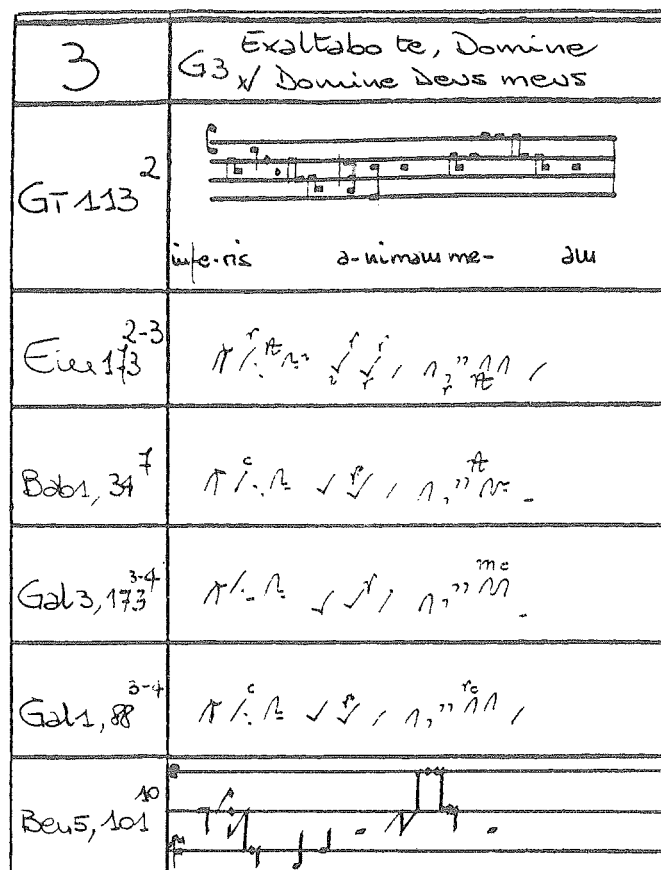 3
Exaltabo te, Domine
G3 ℣ Domine Deus meus
GT 113 2
infe-ris a-nimam me- am
Ein 173 2-3
Bab1, 34 7
Gal3, 173 3-4
Gal1, 88 3-4
Ben5, 101 10